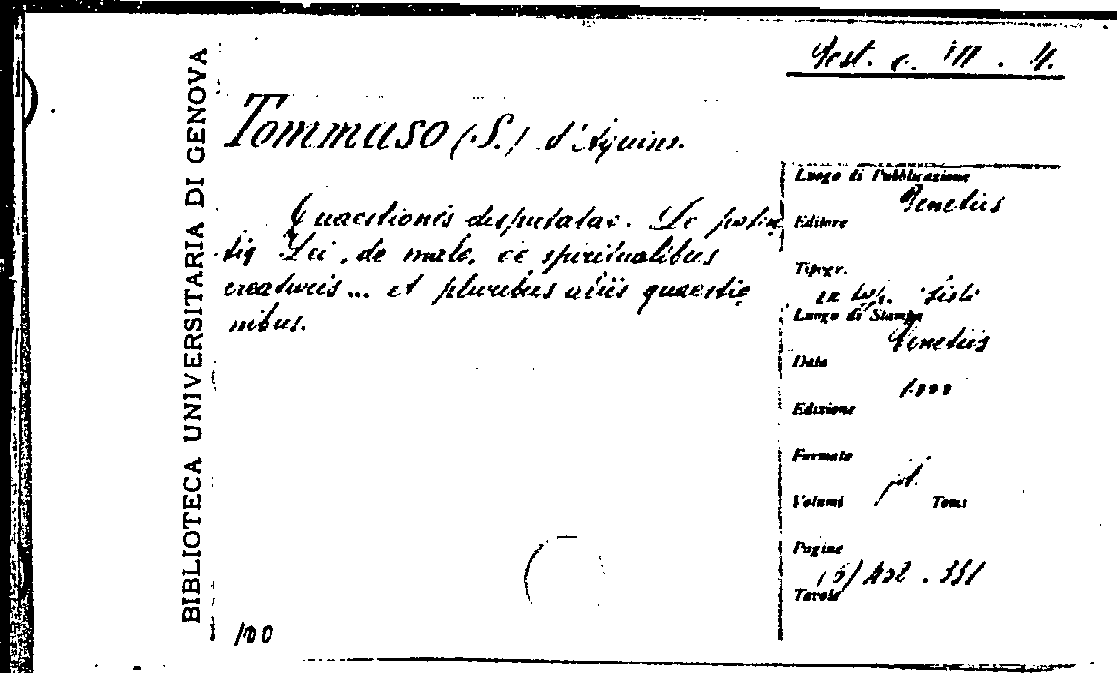 BIBLIOTECA UNIVERSITARIA DI GENOVA
Tommaso (S.) d'Aquino.
Quaestionis disputatae. De poten
tia Dei, de malo, de spiritualibus
creaturis... et pluribus aliis quaestio
nibus.
Luogo di Pubblicazione
Venetiis
Editore
Tipogr.
ex typ.
Luogo di Stampa
Venetiis
Data
Edizione
Formato
Volumi
Tomi
Pagine
Tavole
100